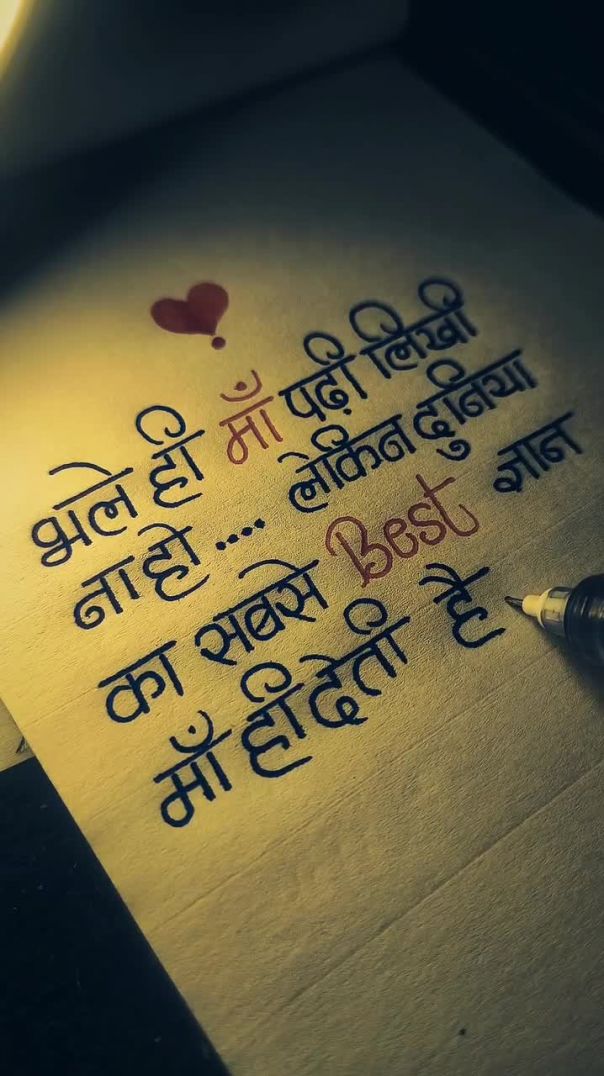 भले ही माँ पढ़ी लिखी
ना हो.... लेकिन दुनिया
का सबसे Best ज्ञान
माँ ही देती है